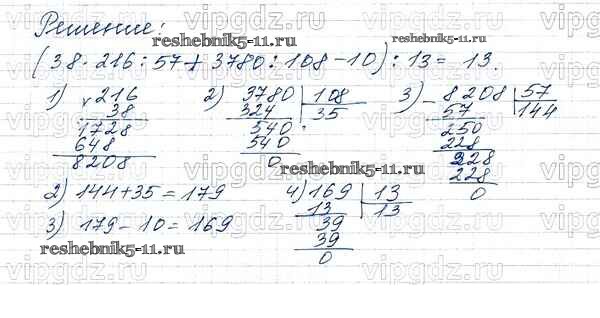 Решение:
(38 · 216 : 57 + 3780 : 108 - 10) : 13 = 13.
1) × 216
38
1728
648
8208
2) 3780 | 108
324 35
540
540
0
3) - 8208 | 57
57 144
250
228
228
228
0
2) 144 + 35 = 179
3) 179 - 10 = 169
4) 169 | 13
13 13
39
39
0
reshebnik5-11.ru
reshebnik5-11.ru
reshebnik5-11.ru
reshebnik5-11.ru
vipgdz.ru